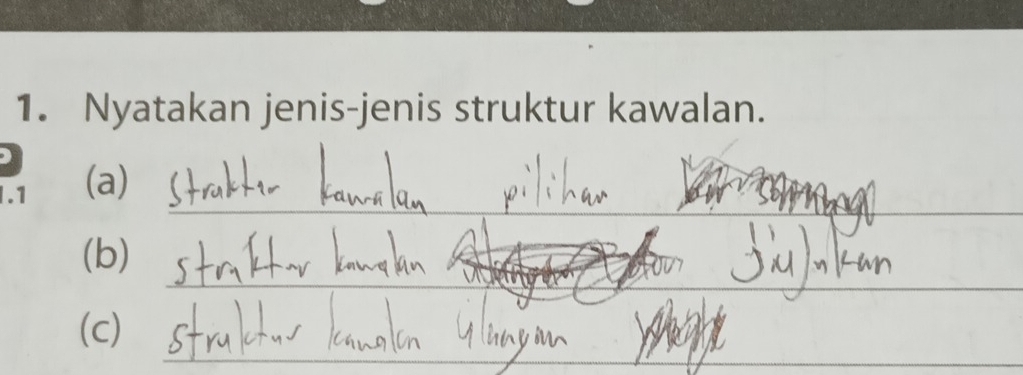 1. Nyatakan jenis-jenis struktur kawalan.
1.1
(a) struktur kawalan pilihan
(b) struktur kawalan jujukan
(c) struktur kawalan ulangan